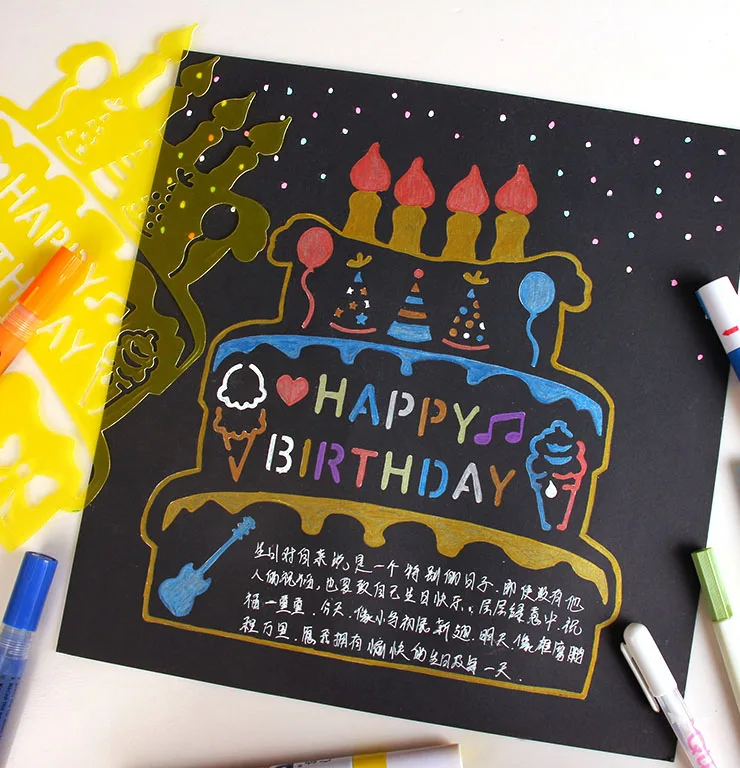 HAPPY
BIRTHDAY
HAPPY
BIRTHDAY
生日对自来说是一个特别的日子.即使没有他
人的祝福,也要致自己生日快乐。层层绿意中.祝
福一重重.今天.像小鸟初展新翅.明天.像雄鹰鹏
程万里.愿予拥有愉快的生日及每一天.